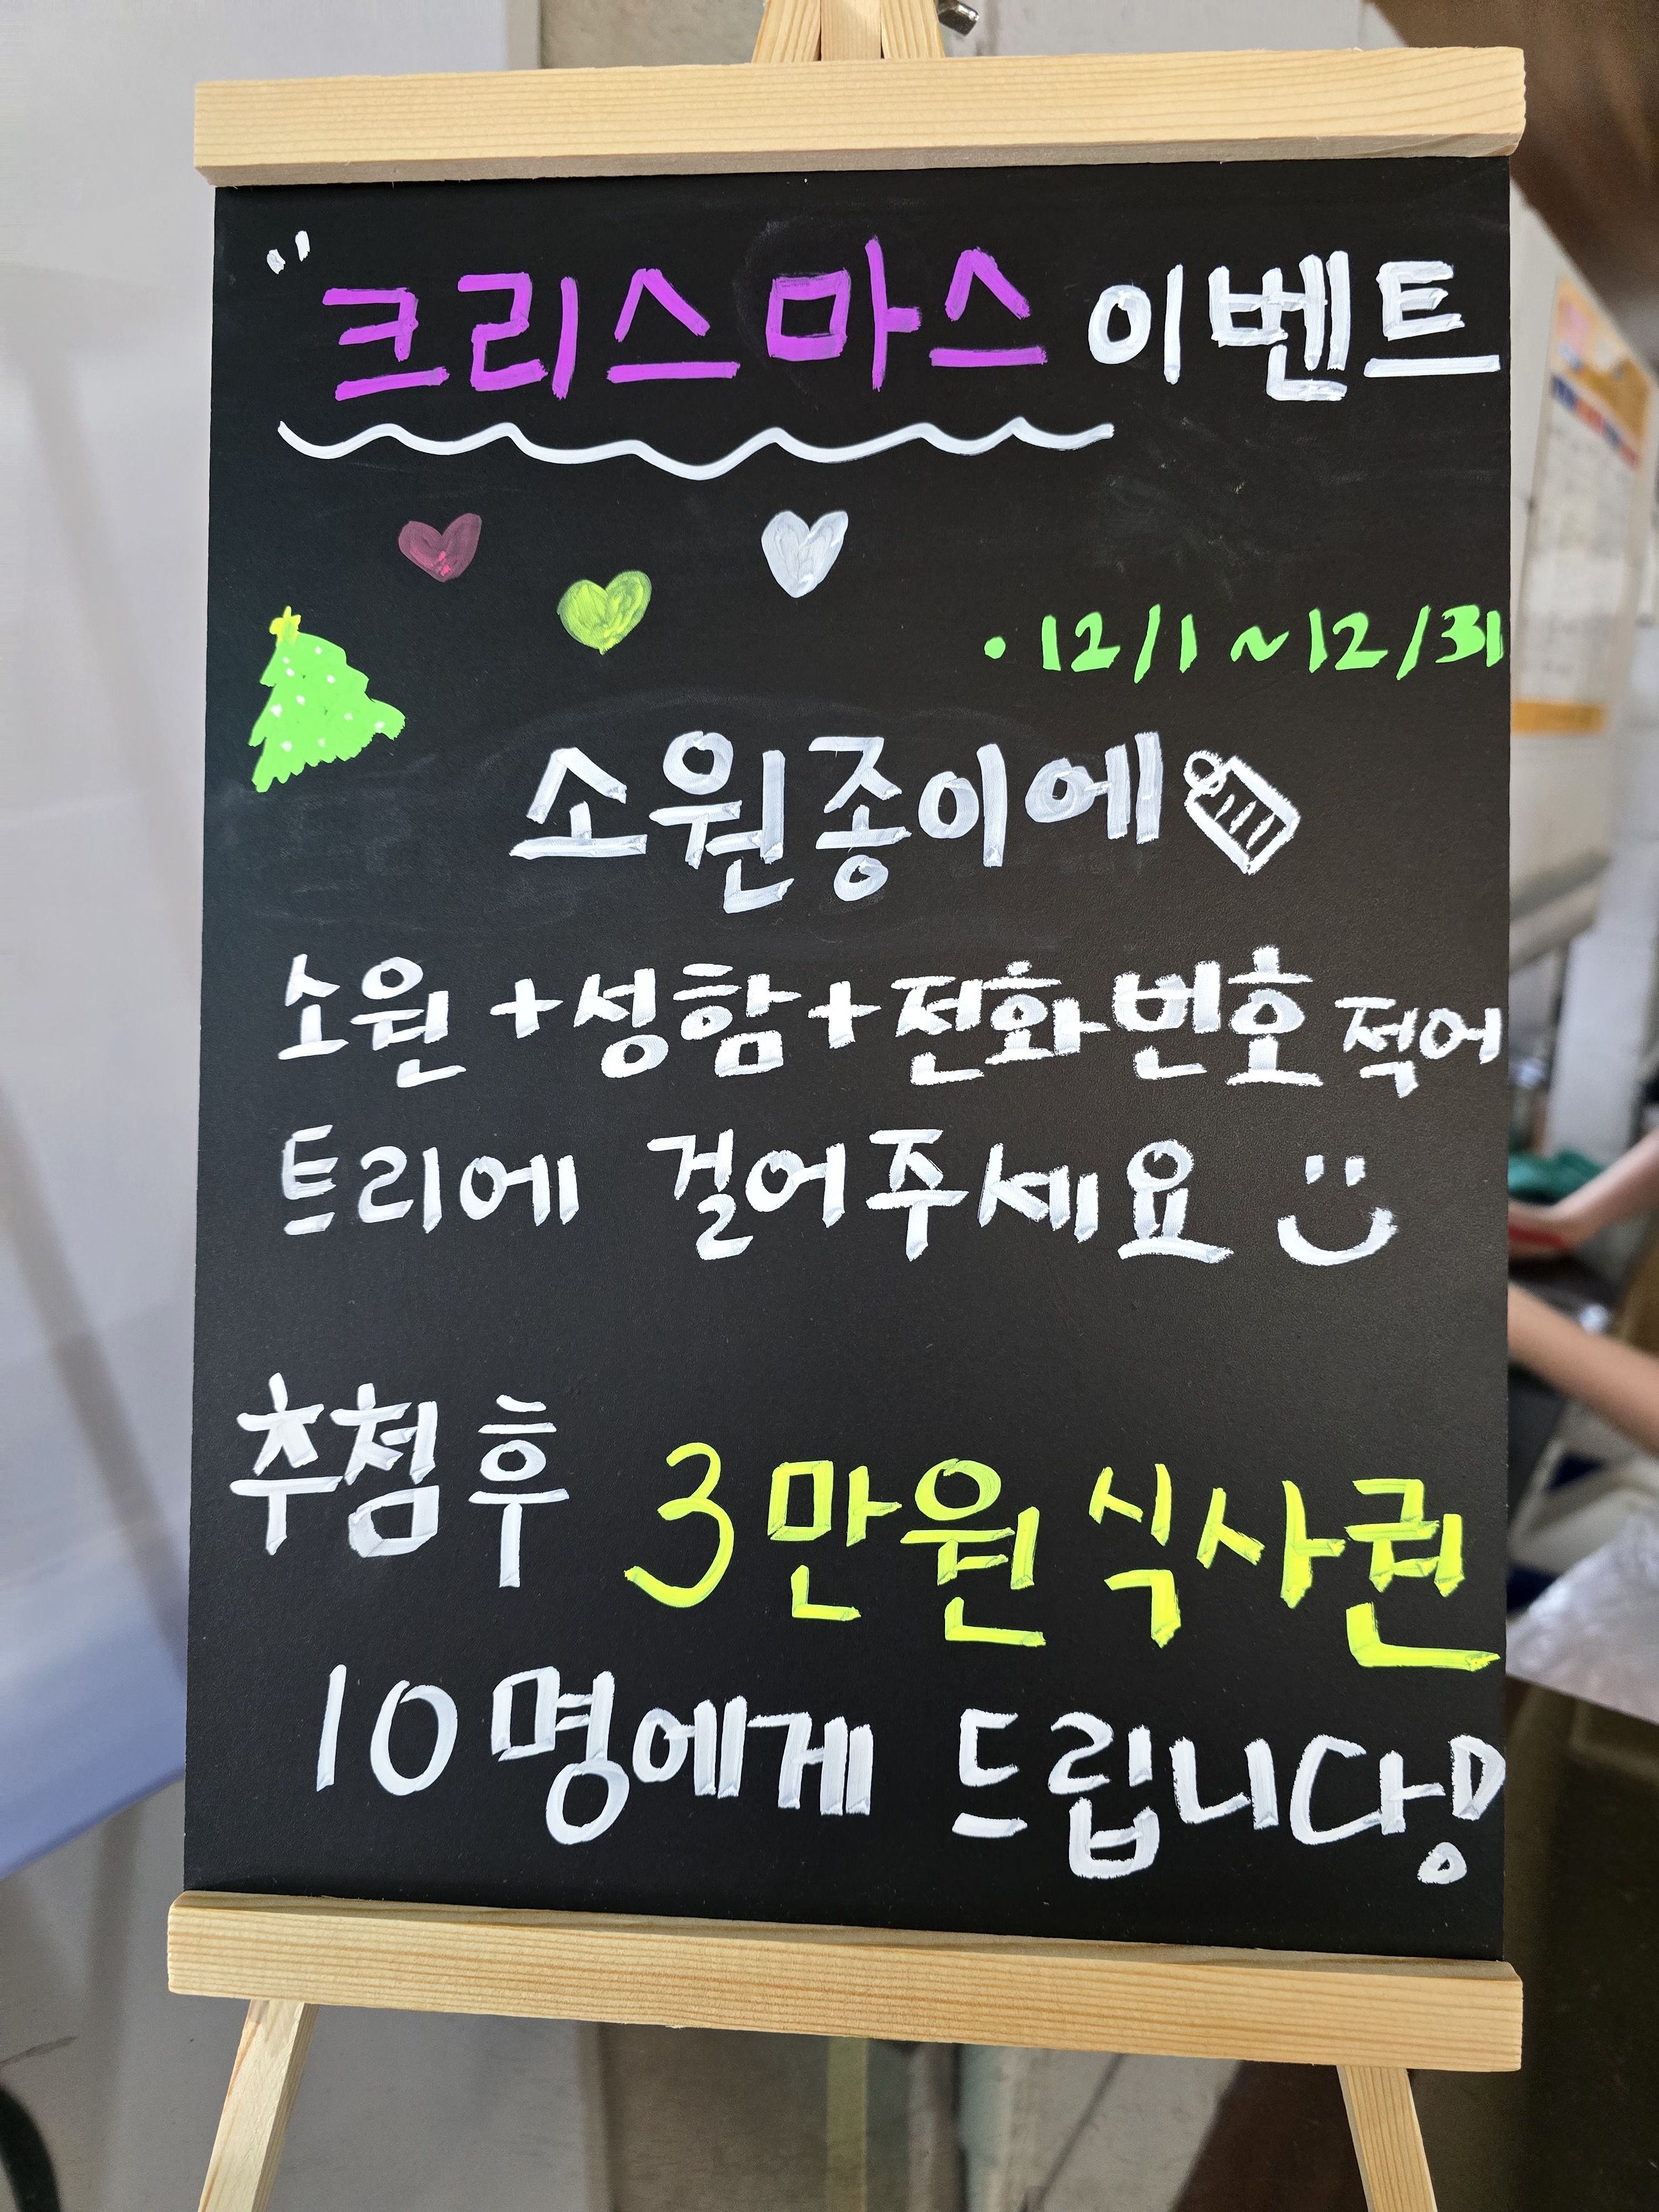 " 크리스마스 이벤트
· 12/1 ~ 12/31
소원종이에
소원 + 성함 + 전화번호 적어
트리에 걸어주세요
추첨 후 3만원 식사권
10명에게 드립니다!